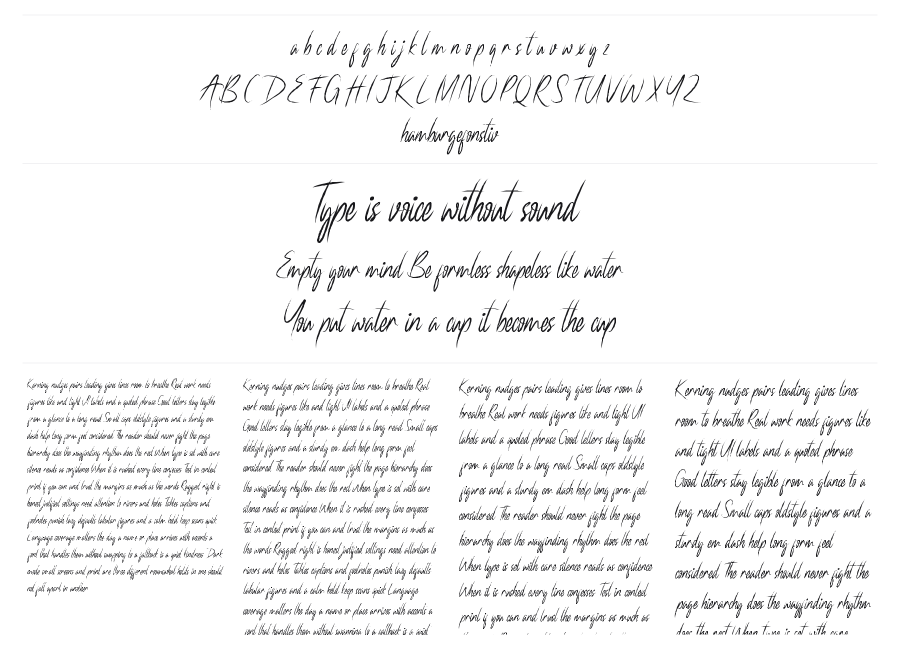 a b c d e f g h i j k l m n o p q r s t u v w x y z
A B C D E F G H I J K L M N O P Q R S T U V W X Y Z
hamburgefonstiv
Type is voice without sound
Empty your mind Be formless shapeless like water
You put water in a cup it becomes the cup
Kerning nudges pairs leading gives lines room to breathe Real work needs
figures like and tight UI labels and a quoted phrase Good letters stay legible
from a glance to a long read Small caps oldstyle figures and a sturdy em
dash help long form feel considered The reader should never fight the page
hierarchy does the wayfinding rhythm does the rest When type is set with care
silence reads as confidence When it is rushed every line confesses Test in context
print if you can and trust the margins as much as the words Ragged right is
honest justified settings need attention to rivers and holes Tables captions and
footnotes punish lazy defaults tabular figures and a calm hold keep scans quiet
Language coverage matters the day a name or place arrives with accents a
font that handles them without swapping to a fallback is a quiet kindness Dark
mode small screens and print are three different rooms what holds in one should
not fall apart in another
Kerning nudges pairs leading gives lines room to breathe Real
work needs figures like and tight UI labels and a quoted phrase
Good letters stay legible from a glance to a long read Small caps
oldstyle figures and a sturdy em dash help long form feel
considered The reader should never fight the page hierarchy does
the wayfinding rhythm does the rest When type is set with care
silence reads as confidence When it is rushed every line confesses
Test in context print if you can and trust the margins as much as
the words Ragged right is honest justified settings need attention to
rivers and holes Tables captions and footnotes punish lazy defaults
tabular figures and a calm hold keep scans quiet Language
coverage matters the day a name or place arrives with accents a
font that handles them without swapping to a fallback is a quiet
Kerning nudges pairs leading gives lines room to
breathe Real work needs figures like and tight UI
labels and a quoted phrase Good letters stay legible
from a glance to a long read Small caps oldstyle
figures and a sturdy em dash help long form feel
considered The reader should never fight the page
hierarchy does the wayfinding rhythm does the rest
When type is set with care silence reads as confidence
When it is rushed every line confesses Test in context
print if you can and trust the margins as much as
Kerning nudges pairs leading gives lines
room to breathe Real work needs figures like
and tight UI labels and a quoted phrase
Good letters stay legible from a glance to a
long read Small caps oldstyle figures and a
sturdy em dash help long form feel
considered The reader should never fight the
page hierarchy does the wayfinding rhythm
does the rest When type is set with care